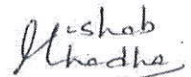 Rishab
Chadha